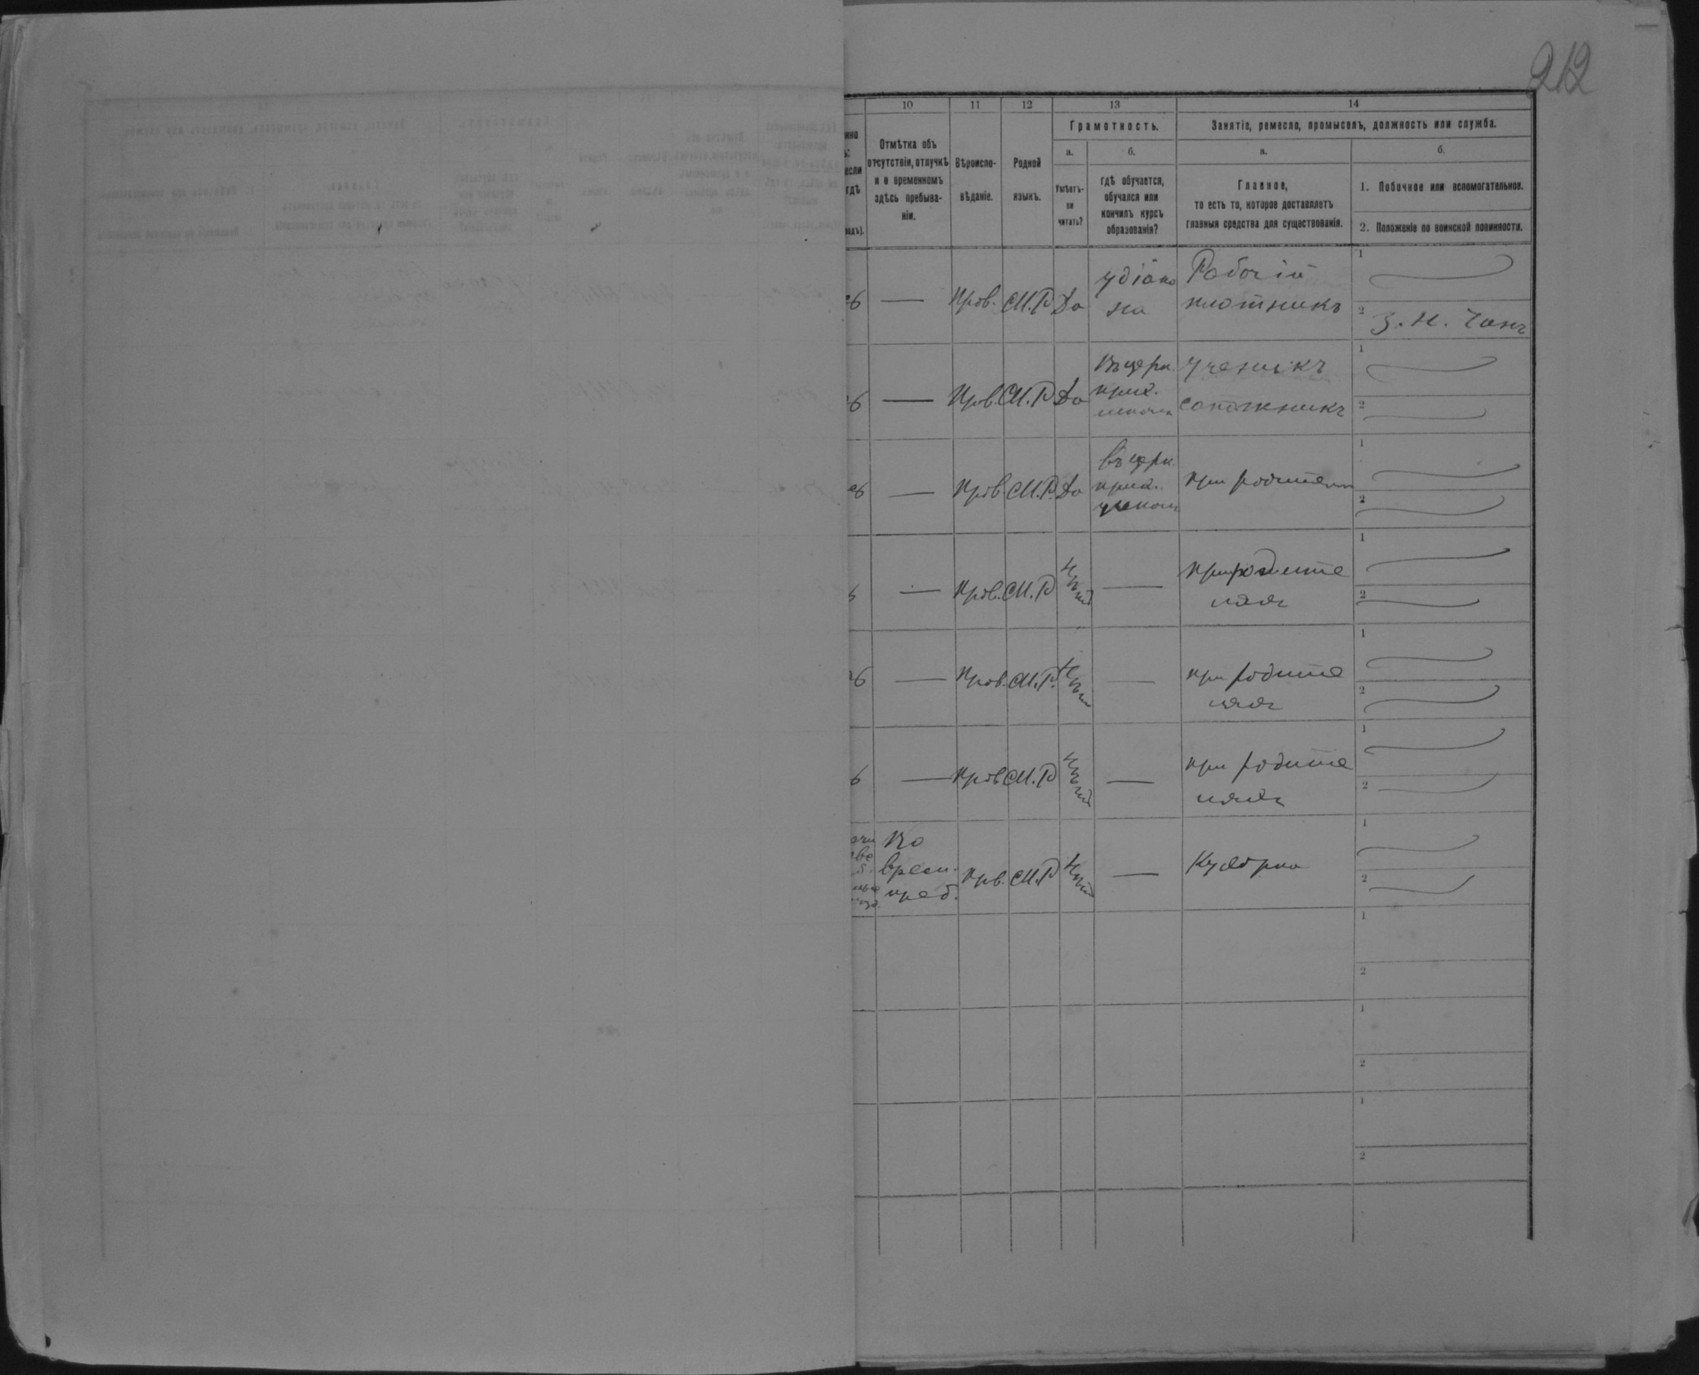 212
10
11
12
13
14
Отмѣтка объ
отсутствіи, отлучкѣ
и о временномъ
здѣсь пребыва-
ніи.
Вѣроиспо-
вѣданіе.
Родной
языкъ.
Грамотность.
а.
Умѣетъ-
ли
читать?
б.
гдѣ обучается,
обучался или
кончилъ курсъ
образованія?
Занятіе, ремесло, промыселъ, должность или служба.
а.
Главное,
то есть то, которое доставляетъ
главныя средства для существованія.
б.
1. Побочное или вспомогательное.
2. Положеніе по воинской повинности.
— Прав. М.Р. Да
у діако
на
Рабочій
плотникъ
1
2
— Прав. М.Р. Да
Въ церк.
прих.
школѣ
ученикъ
сапожникъ
1
2
— Прав. М.Р. Да
въ церк.
прих.
при родителях
1
2
— Прав. М.Р. Нѣтъ —
при родите
ляхъ
1
2
— Прав. М.Р. Нѣтъ —
при родите
ляхъ
1
2
— Прав. М.Р. Нѣтъ —
при родите
ляхъ
1
2
врем.
преб.
Прв. М.Р. Нѣтъ —
1
2
1
2
1
2
1
2